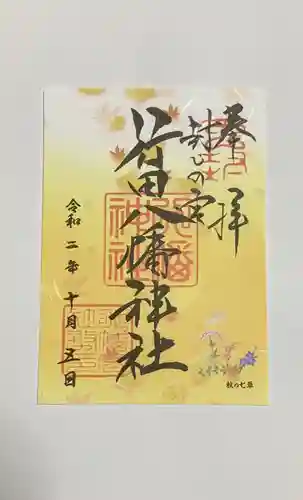 奉拝
封じの宮
行田八幡神社
令和二年十月五日
秋の七草